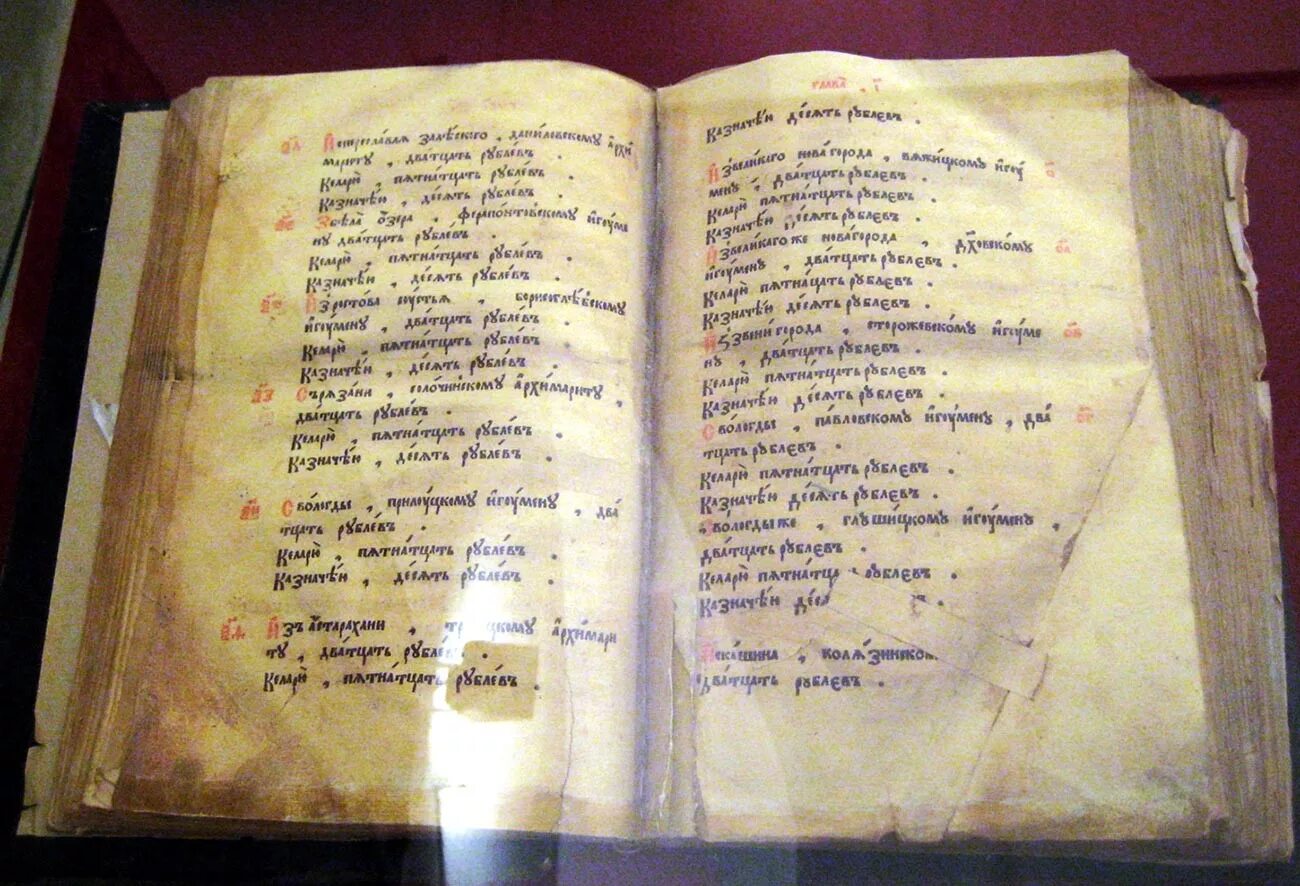 И҆ переславля залѣ́ского , дани́ловскому а҆рхи
мариту , два́тцать рꙋбле́въ .
Келарю̀ , пѧтна́тцать рꙋбле́въ .
Казначе́ю , де́сѧть рꙋбле́въ .
Збѣла ѻ҆зера , ферапонто́вскому и҆гꙋме
ну два́тцать рꙋбле́въ .
Келарю̀ , пѧтна́тцать рꙋбле́въ .
Казначе́ю , де́сѧть рꙋбле́въ .
И҆зросто́ва оустьѧ , борисоглѣ́бскому
и҆гꙋмену , два́тцать рꙋбле́въ .
Келарю̀ , пѧтна́тцать рꙋбле́въ .
Казначе́ю , де́сѧть рꙋбле́въ .
Съряза́ни , соло́чинскому а҆рхимариту ,
два́тцать рꙋбле́въ .
Келарю̀ , пѧтна́тцать рꙋбле́въ .
Казначе́ю , де́сѧть рꙋбле́въ .
Сво́логды , прилоуцкому и҆гоу́мену , два́
тцать рꙋбле́въ .
Келарю̀ , пѧтна́тцать рꙋбле́въ .
Казначе́ю , де́сѧть рꙋбле́въ .
И҆зъ а҆старахани , а҆рхимари
ту , два́тцать рꙋбле́въ .
Келарю̀ , пѧтна́тцать рꙋбле́въ .
глава̀
Казначе́ю де́сѧть рꙋбле́въ .
И҆звели́каго нова́города , вѧжицкому и҆гоу
мену , два́тцать рꙋбле́въ .
Келарю̀ пѧтна́тцать рꙋбле́въ .
Казначе́ю де́сѧть рꙋбле́въ .
И҆звели́каго же нова́города , дꙋ́ховскому
и҆гоу́мену , два́тцать рꙋбле́въ .
Келарю̀ пѧтна́цать рꙋбле́въ .
Казначе́ю де́сѧть рꙋбле́въ .
И҆ззвени́города , сторожевско́му и҆гоу́ме
ну , два́тцать рꙋбле́въ .
Келарю̀ пѧтна́тцать рꙋбле́въ .
Казначе́ю де́сѧть рꙋбле́въ .
Сво́логды , па́вловскому и҆гоу́мену , два́
тцать рꙋбле́въ .
Келарю̀ пѧтна́тцать рꙋбле́въ .
Казначе́ю де́сѧть рꙋбле́въ .
Сво́логды же , глꙋши́цкому и҆гоу́мену ,
два́тцать рꙋбле́въ .
Келарю̀ рꙋбле́въ .
Казначе́ю
И҆скашина ,
два́тцать рꙋбле́въ .